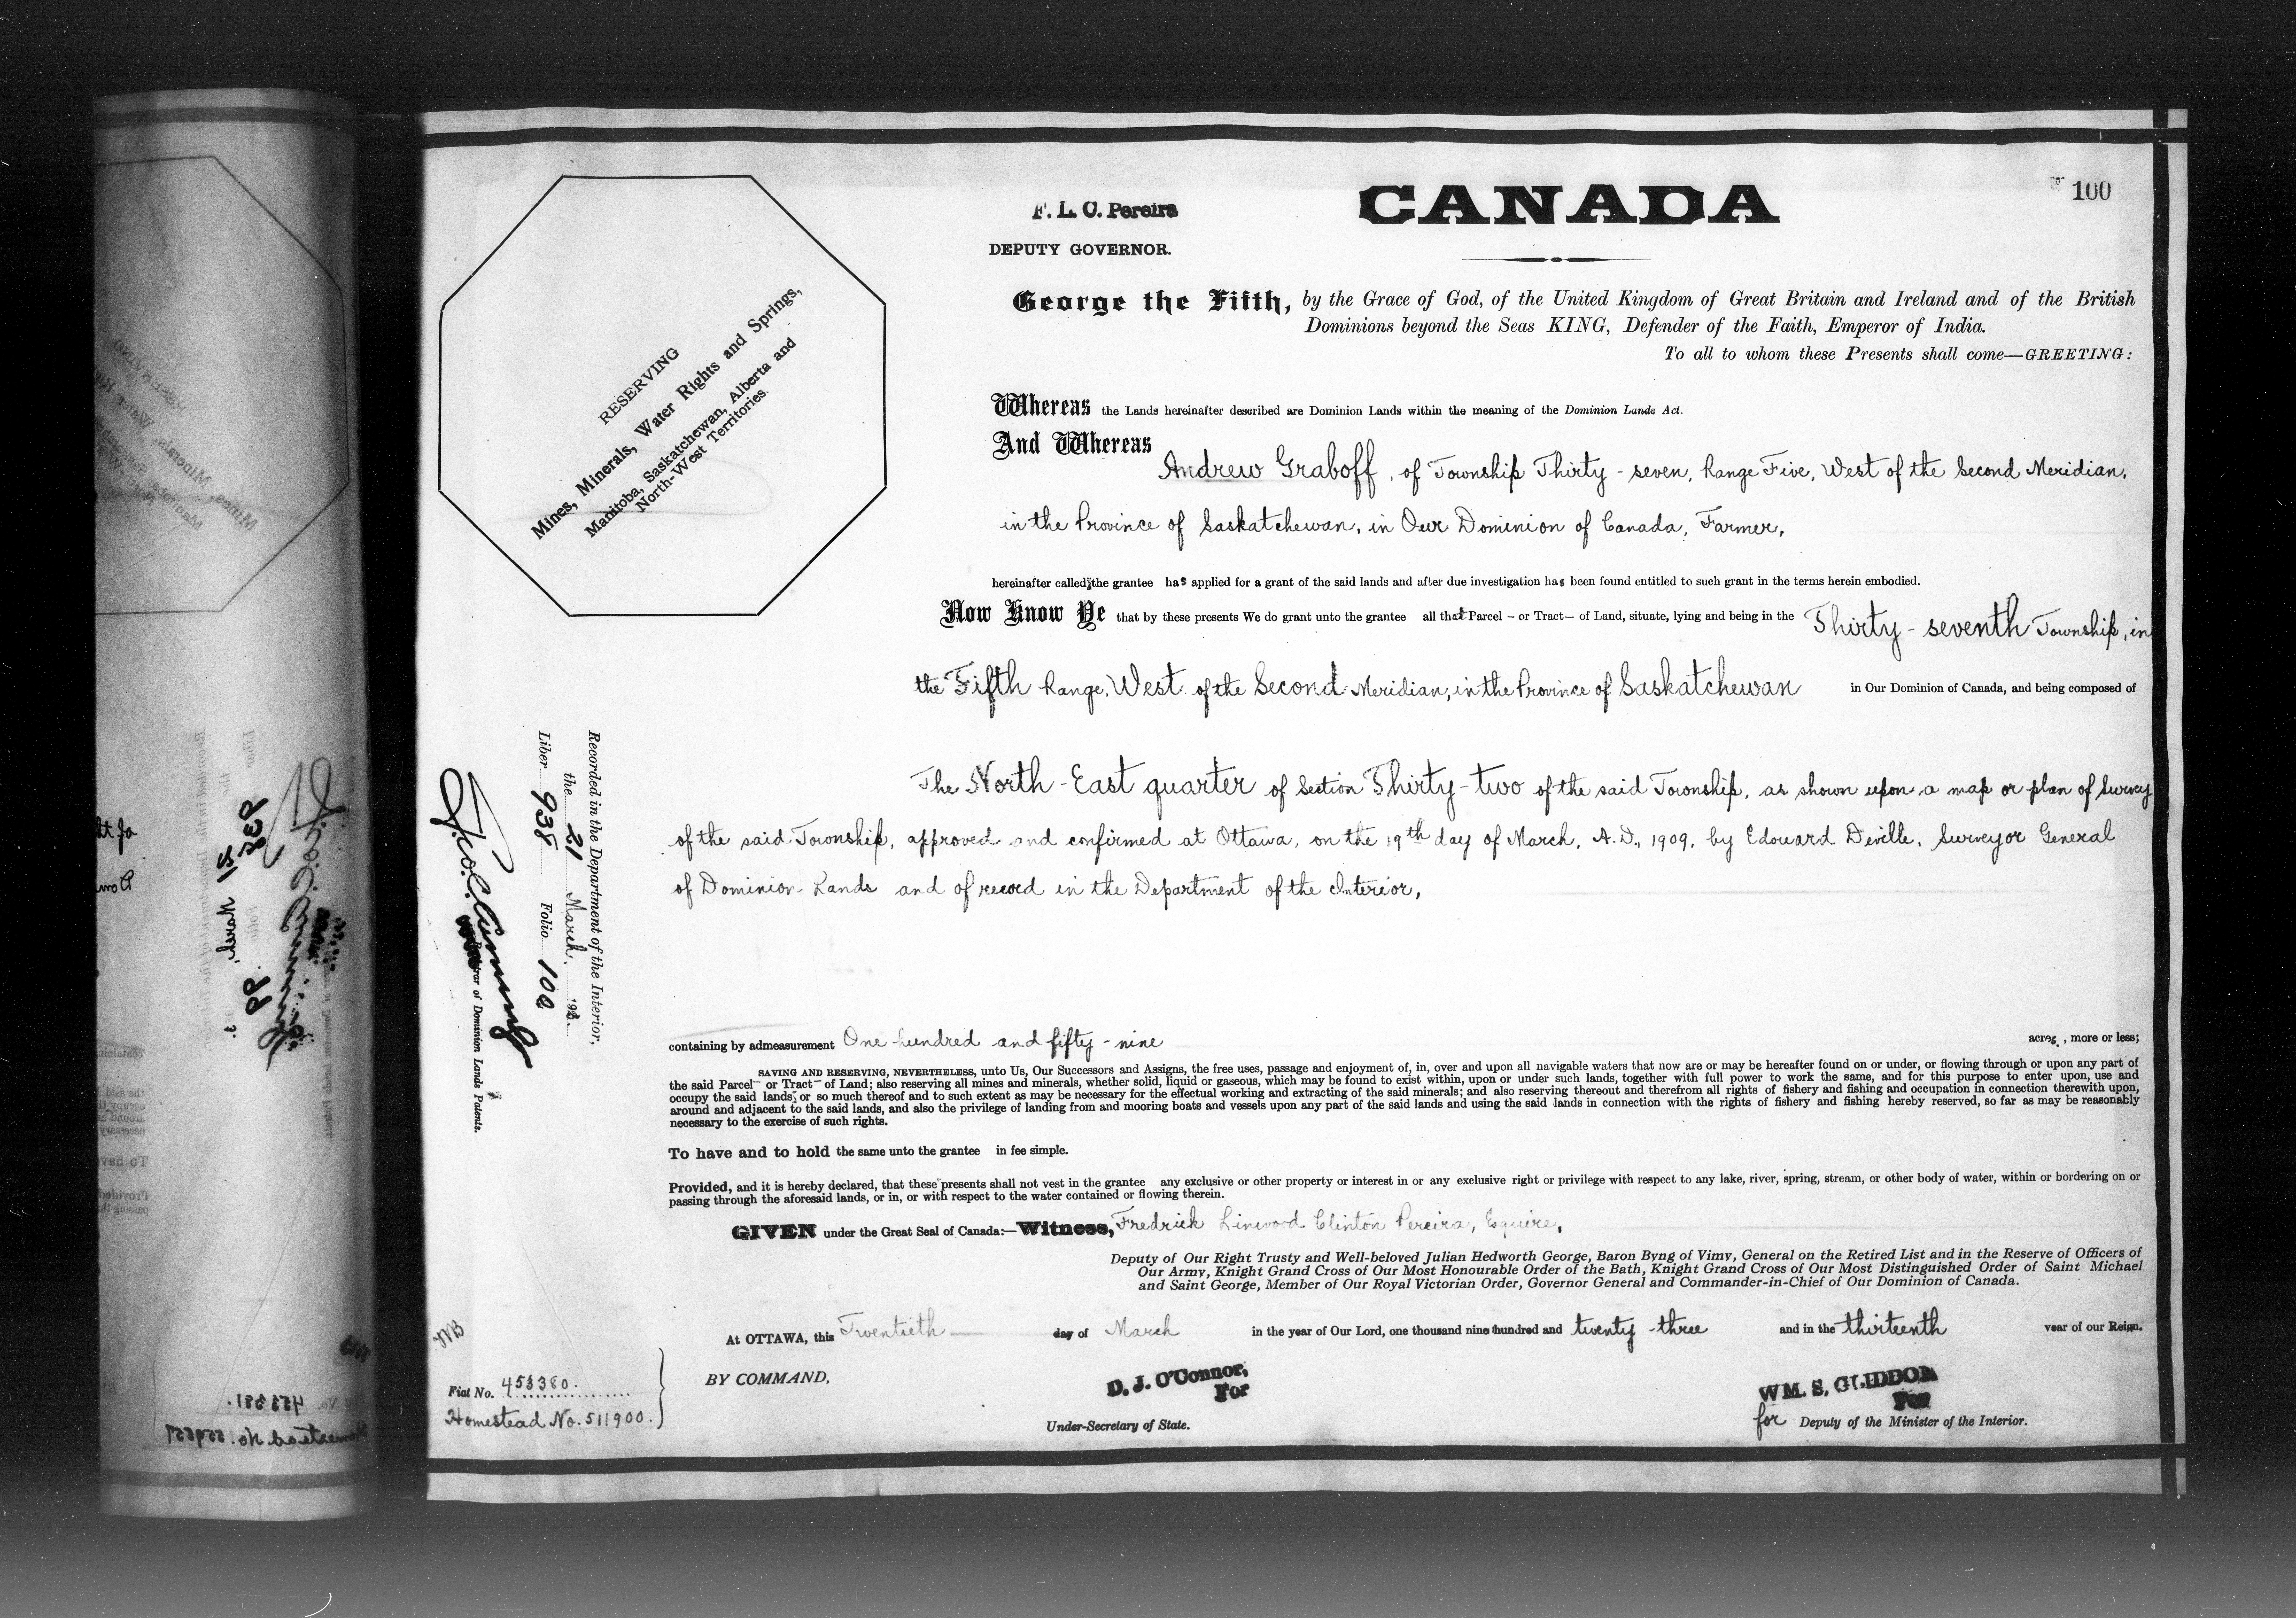 100
CANADA
F. L. C. Pereira
DEPUTY GOVERNOR.
George the Fifth, by the Grace of God, of the United Kingdom of Great Britain and Ireland and of the British
Dominions beyond the Seas KING, Defender of the Faith, Emperor of India.
To all to whom these Presents shall come—GREETING:
RESERVING
Mines, Minerals, Water Rights and Springs,
Manitoba, Saskatchewan, Alberta and
North-West Territories.
Whereas the Lands hereinafter described are Dominion Lands within the meaning of the Dominion Lands Act.
And Whereas
Andrew Graboff, of Township Thirty-seven, Range Five, West of the Second Meridian,
in the Province of Saskatchewan, in Our Dominion of Canada, Farmer,
hereinafter called the grantee has applied for a grant of the said lands and after due investigation has been found entitled to such grant in the terms herein embodied.
Now Know Ye that by these presents We do grant unto the grantee all that Parcel - or Tract - of Land, situate, lying and being in the Thirty-seventh Township, in
the Fifth Range, West of the Second Meridian, in the Province of Saskatchewan in Our Dominion of Canada, and being composed of
The North-East quarter of Section Thirty-two of the said Township, as shown upon a map or plan of Survey
of the said Township, approved and confirmed at Ottawa, on the 19th day of March, A.D., 1909, by Edouard Deville, Surveyor General
of Dominion Lands and of record in the Department of the Interior,
Recorded in the Department of the Interior,
the 21 March,
Liber 938 Folio 100
Registrar of Dominion Lands Patents.
containing by admeasurement One hundred and fifty-nine acres, more or less;
SAVING AND RESERVING, NEVERTHELESS, unto Us, Our Successors and Assigns, the free uses, passage and enjoyment of, in, over and upon all navigable waters that now are or may be hereafter found on or under, or flowing through or upon any part of
the said Parcel - or Tract - of Land; also reserving all mines and minerals, whether solid, liquid or gaseous, which may be found to exist within, upon or under such lands, together with full power to work the same, and for this purpose to enter upon, use and
occupy the said lands, or so much thereof and to such extent as may be necessary for the effectual working and extracting of the said minerals; and also reserving thereout and therefrom all rights of fishery and fishing and occupation in connection therewith upon,
around and adjacent to the said lands, and also the privilege of landing from and mooring boats and vessels upon any part of the said lands and using the said lands in connection with the rights of fishery and fishing hereby reserved, so far as may be reasonably
necessary to the exercise of such rights.
To have and to hold the same unto the grantee in fee simple.
Provided, and it is hereby declared, that these presents shall not vest in the grantee any exclusive or other property or interest in or any exclusive right or privilege with respect to any lake, river, spring, stream, or other body of water, within or bordering on or
passing through the aforesaid lands, or in, or with respect to the water contained or flowing therein.
GIVEN under the Great Seal of Canada:—Witness, Fredrick Linwood Clinton Pereira, Esquire,
Deputy of Our Right Trusty and Well-beloved Julian Hedworth George, Baron Byng of Vimy, General on the Retired List and in the Reserve of Officers of
Our Army, Knight Grand Cross of Our Most Honourable Order of the Bath, Knight Grand Cross of Our Most Distinguished Order of Saint Michael
and Saint George, Member of Our Royal Victorian Order, Governor General and Commander-in-Chief of Our Dominion of Canada.
At OTTAWA, this Twentieth day of March in the year of Our Lord, one thousand nine hundred and twenty-three and in the thirteenth year of our Reign.
BY COMMAND,
D. J. O'Connor,
For
Under-Secretary of State.
WM. S. GLIDDON
For
for Deputy of the Minister of the Interior.
Fiat No. 453380.
Homestead No. 511900.